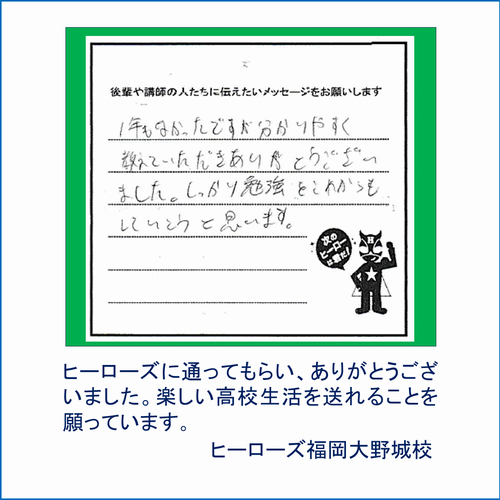 後輩や講師の人たちに伝えたいメッセージをお願いします
1年もなかったですが分かりやすく
教えていただきありがとうござい
ました。しっかり勉強をこれからも
していこうと思います。
次の
ヒーロー
は君だ!
H
ヒーローズに通ってもらい、ありがとうござ
いました。楽しい高校生活を送れることを
願っています。
ヒーローズ福岡大野城校